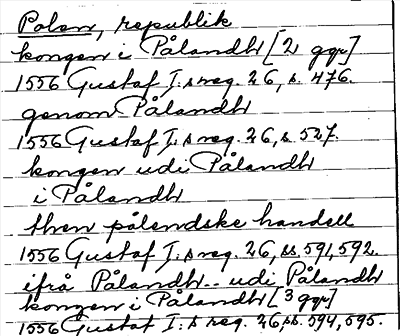 Polen, republik
kongen i Pålandh [2 ggr]
1556 Gustaf I:s reg. 26, s. 476.
genom Pålandh
1556 Gustaf I:s reg. 26, s. 527.
kongen udi Pålandh
i Pålandh
then pålendske handell
1556 Gustaf I:s reg. 26, ss. 591, 592.
ifrå Pålandh.. udi Pålandh
kongen i Pålandh [3 ggr]
1556 Gustaf I:s reg. 26, ss. 594, 595.